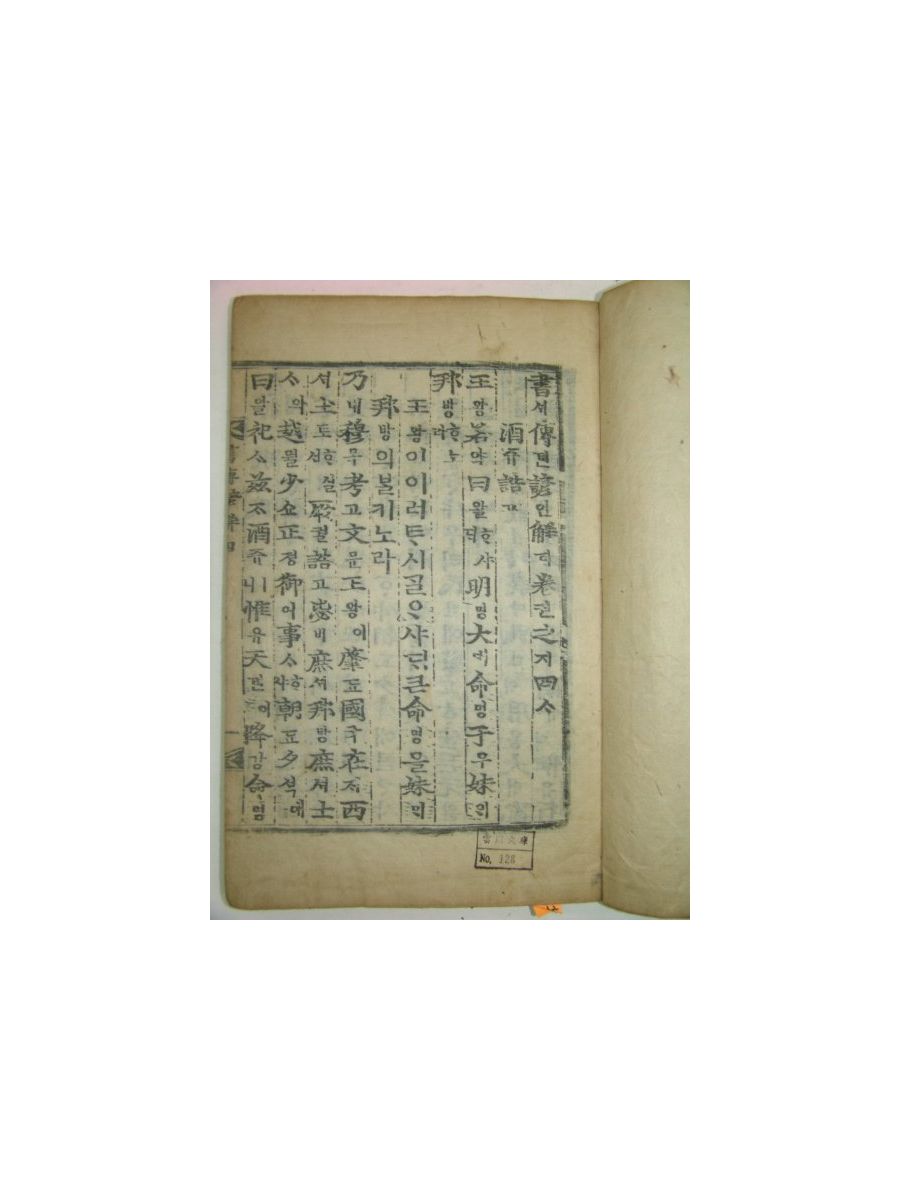 書셔傳뎐諺언解ᄒᆡ卷권之지四ᄉᆞ
酒쥬誥고
王왕若약曰왈ᄒᆞ샤ᄃᆡ明명大대命명于우妹ᄆᆡ
邦방ᄒᆞ노라
王왕이이러ᄐᆞ시길ᄋᆞ샤ᄃᆡ큰命명을妹ᄆᆡ
邦방의볼키노라
乃내穆목考고文문王왕이肇됴國국在ᄌᆡ西
셔土토ᄒᆞ실ᄉᆡ厥궐誥고毖비庶셔邦방庶셔士
ᄉᆞ와越월少쇼正졍御어事ᄉᆞᄒᆞ샤朝됴夕셕애
曰왈祀ᄉᆞ玆ᄌᆞ酒쥬ㅣ니惟유天텬이降강命명
書傳諺解四
No. 128